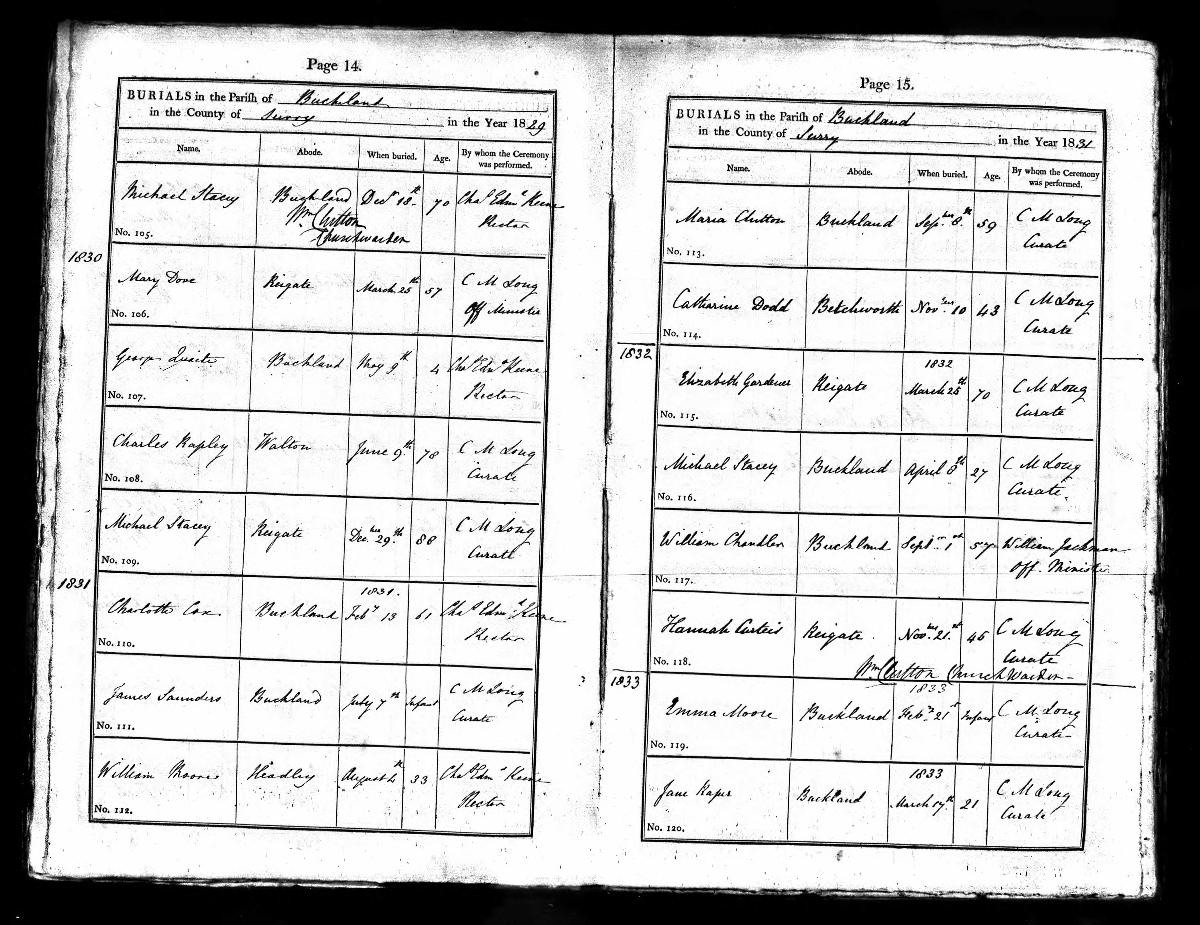 Page 14.
BURIALS in the Parish of Buckland
in the County of Surry in the Year 1829
Name. Abode. When buried. Age. By whom the Ceremony was performed.
Michael Stacey Buckland Decr 18th 70 Chas Edmd Keene
Wm Clutton Rector
Churchwarden
No. 105.
1830
Mary Dove Reigate March 25th 57 C M Long
Off Minister
No. 106.
George Buckland May 9th 4 Chas Edmd Keene
Rector
No. 107.
Charles Rapley Walton June 9th 78 C M Long
Curate
No. 108.
Michael Stacey Reigate Decber 29th 88 C M Long
Curate
No. 109.
1831
1831.
Charlotte Cox Buckland Feby 13 61 Chas Edmd Keene
Rector
No. 110.
James Saunders Buckland July 7th Infant C M Long
Curate
No. 111.
William Moore Headley August 4th 33 Chas Edmd Keene
Rector
No. 112.
Page 15.
BURIALS in the Parish of Buckland
in the County of Surry in the Year 1831
Name. Abode. When buried. Age. By whom the Ceremony was performed.
Maria Clutton Buckland Sepber 8th 59 C M Long
Curate
No. 113.
Catharine Dodd Betchworth Novber 10 43 C M Long
Curate
No. 114.
1832
1832
Elizabeth Gardener Reigate March 25th 70 C M Long
Curate
No. 115.
Michael Stacey Buckland April 8th 27 C M Long
Curate.
No. 116.
William Chandler Buckland Septr 1st 57 William Jackman
Off. Minister
No. 117.
Hannah Curteis Reigate. Novber 21st 45 C M Long
Curate
No. 118.
Wm Clutton Church Warden
1833
1833
Emma Moore Buckland Feby 21st Infant C M. Long
Curate
No. 119.
1833
Jane Buckland March 17th 21 C M Long
Curate
No. 120.